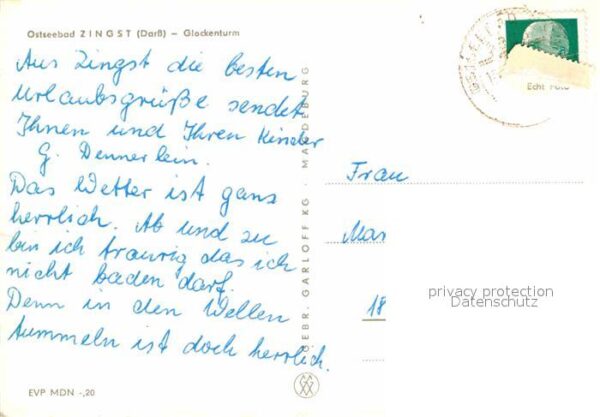 Ostseebad ZINGST (Darß) – Glockenturm
Aus Zingst die besten
Urlaubsgrüße sendet
Ihnen und Ihren Kinder
G. Dennerlein.
Das Wetter ist ganz
herrlich. Ab und zu
bin ich traurig das ich
nicht baden darf.
Denn in den Wellen
tummeln ist doch herrlich.
EVP MDN -,20
GEBR. GARLOFF KG · MAGDEBURG
Echt Foto
Frau
Mar
18
privacy protection
Datenschutz